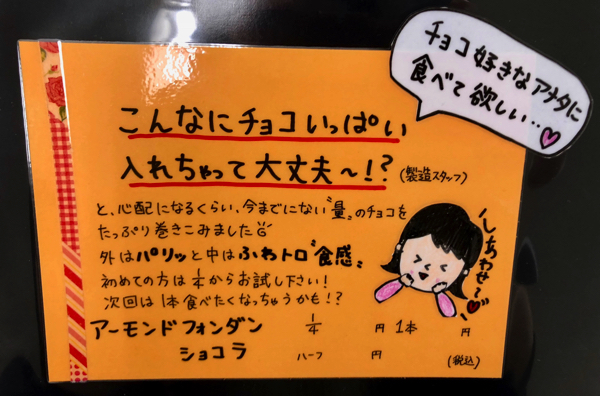 チョコ好きなアナタに
食べて欲しい‥
こんなにチョコいっぱい
入れちゃって大丈夫〜!?
(製造スタッフ)
と、心配になるくらい、今までにない〝量〟のチョコを
たっぷり巻きこみました
外はパリッと中はふわトロ〝食感〟
初めての方は1/4からお試し下さい!
次回は1本食べたくなっちゃうかも!?
しあわせ!
アーモンドフォンダン 1/4 円 1本 円
ショコラ ハーフ 円 (税込)